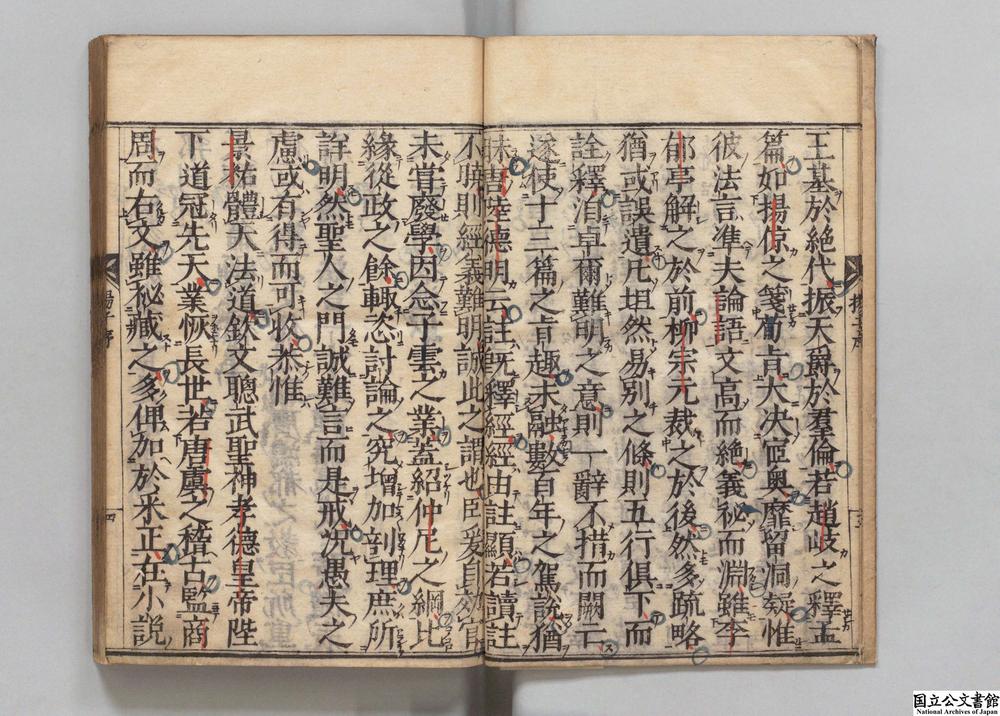 王墓於絶代振天爵於羣倫若趙岐之釋孟
篇如揚倞之箋荀肯大决宧奥靡留洞疑惟
彼法言準夫論語文高而絶義祕而淵雖李
郁亭解之於前柳宗元裁之於後然多疏略
猶或誤遺凡坦然易别之條則五行俱下而
詮釋洎卓爾難明之意則一辭不措而闕云
遂使十三篇之旨趣未融數百年之駕說猶
昧昔陸德明云註既釋經經由註顯若讀註
不曉則經義難明誠此之謂也臣爰自效官
未甞廢學因念子雲之業蓋紹仲尼之綱比
緣從政之餘輙恣討論之究增加剖理庶所
詳明然聖人之門誠難言而是戒况愚夫之
慮或有得而可收恭惟
景祐體天法道欽文聰武聖神孝德皇帝陛
下道冠先天業恢長世若唐虞之稽古監商
周而右文雖秘藏之多俾加於釆正在小說
揚子序
四
国立公文書館
National Archives of Japan